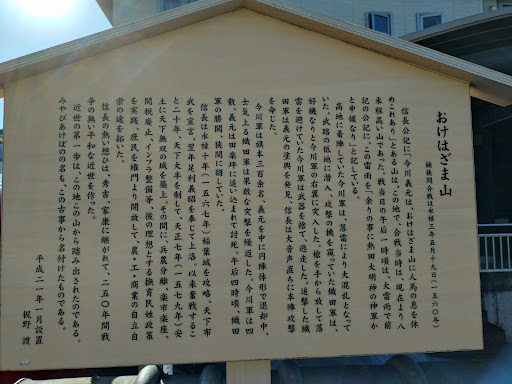 おけはざま山
桶狭間合戦は永禄三年五月十九日(一五六〇年)
信長公記に「今川義元は、おけはざま山に人馬の息を休
めこれあり」とある山は、この地で、合戦当時は、現在より八
米程高い山であった。戦当日の午後一時頃は、大雷雨で前
記の公記に、「この雷雨を一余りの事に熱田大明神の神軍か
と申候なり」と記している。
高地に着陣していた今川軍は、落雷により大混乱となって
いた。武路の低地に潜入、攻撃の機を窺っていた織田軍は、
好機なりと今川軍の右翼に突入した。槍を手から放して落
雷を避けていた今川軍は武器を捨て、逃走した。進撃した織
田軍は義元の塗輿を発見、信長は大音声直ちに本陣攻撃
を命じた。
今川軍は旗本三百余名、義元を中に円陣体形で退却中、
士気上る織田軍は果敢な突撃を繰返した。今川軍は四
散、義元は田楽坪に追い込まれて討死、午后四時頃、織田
軍の勝閧、狭間に谺していた。
信長は永禄十年(一五六七年)稲葉城を攻略。天下布
武を宣言、翌年足利義昭を奉じて上洛。以来奮戦するこ
と二十年、天下大半を制して、天正七年(一五七九年)安
土に天下無双の城を築上、その間に、兵農分離、楽市楽座、
関税廃止、インフラ整備等、彼の理想とする撫育民姓政策
を実践。庶民を権門より開放して、農・工・商業の自立自
営の途を拓いた。
信長の熱い想ひは、秀吉、家康に継がれて、二五〇年間戦
争の無い平和な近世を作った。
近世の第一歩は、この地この山から踏み出されたのである。
みやびあけぼのの名も、この古事から名付けたものである。
平成二一年一月設置
梶野 渡